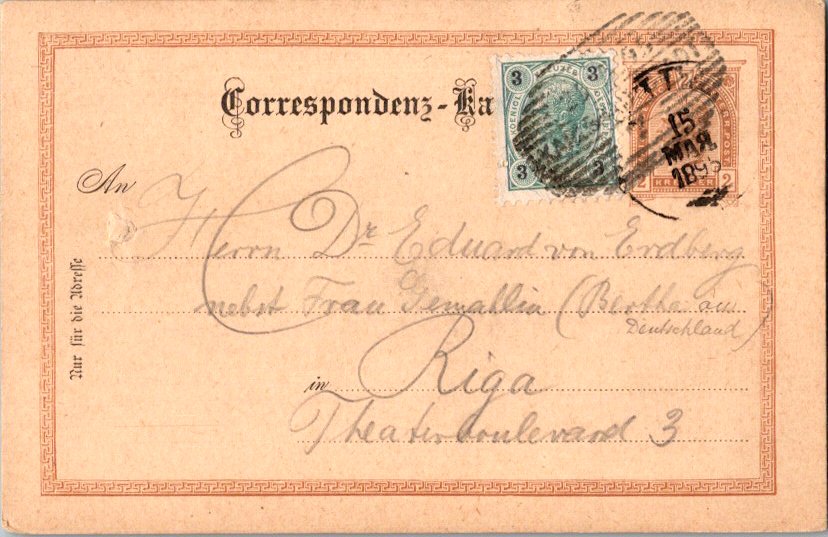 Correspondenz-Ka
3 KREUZER 3
3 3
15
МАЯ
189
2 KREUZER 2
An
Herrn Dr Eduard von Erdberg
nebst Frau Gemahlin (Bertha aus
Deutschland)
in Riga
Theaterboulevard 3
Nur für die Adresse